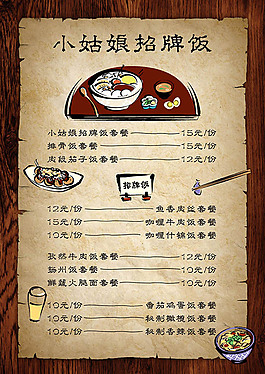 小姑娘招牌饭
小姑娘招牌饭套餐 15元/份
排骨饭套餐 15元/份
肉段茄子饭套餐 12元/份
招牌饭
12元/份 鱼香肉丝套餐
15元/份 咖喱牛肉饭套餐
10元/份 咖喱什锦饭套餐
孜然牛肉饭套餐 12元/份
扬州饭套餐 10元/份
鲜蔬火腿面套餐 10元/份
10元/份 番茄鸡蛋饭套餐
10元/份 秘制橄榄饭套餐
10元/份 秘制香辣饭套餐